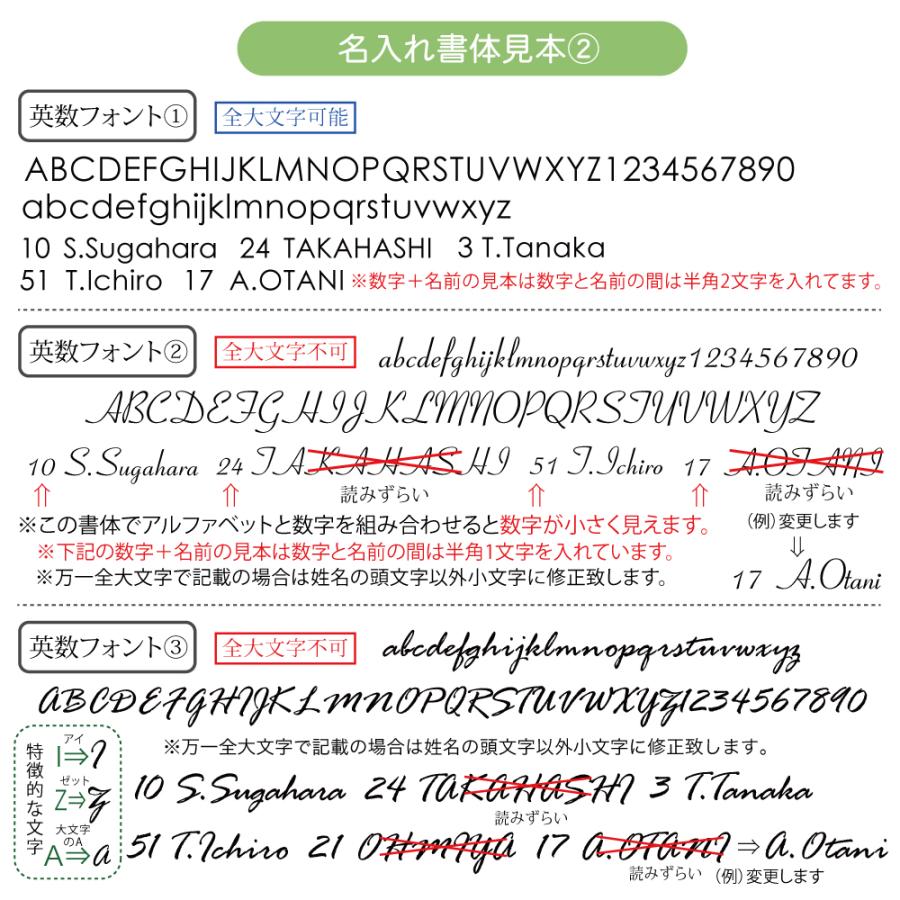 名入れ書体見本②
英数フォント① 全大文字可能
ABCDEFGHIJKLMNOPQRSTUVWXYZ1234567890
abcdefghijklmnopqrstuvwxyz
10 S.Sugahara 24 TAKAHASHI 3 T.Tanaka
51 T.Ichiro 17 A.OTANI ※数字＋名前の見本は数字と名前の間は半角2文字を入れてます。
英数フォント② 全大文字不可 abcdefghijklmnopqrstuvwxyz1234567890
ABCDEFGHIJKLMNOPQRSTUVWXYZ
10 S.Sugahara 24 TAKAHASHI 51 T.Ichiro 17 A.OTANI
⇧ ⇧ 読みずらい ⇧ ⇧ 読みずらい
※この書体でアルファベットと数字を組み合わせると数字が小さく見えます。 （例）変更します
※下記の数字＋名前の見本は数字と名前の間は半角1文字を入れています。 ⇩
※万一全大文字で記載の場合は姓名の頭文字以外小文字に修正致します。 17 A.Otani
英数フォント③ 全大文字不可 abcdefghijklmnopqrstuvwxyz
ABCDEFGHIJKLMNOPQRSTUVWXYZ1234567890
特徴的な文字
アイ
I⇒I
ゼット
Z⇒Z
大文字のA
A⇒A
※万一全大文字で記載の場合は姓名の頭文字以外小文字に修正致します。
10 S.Sugahara 24 TAKAHASHI 3 T.Tanaka
読みずらい
51 T.Ichiro 21 OHMIYA 17 A.OTANI ⇒ A.Otani
読みずらい （例）変更します